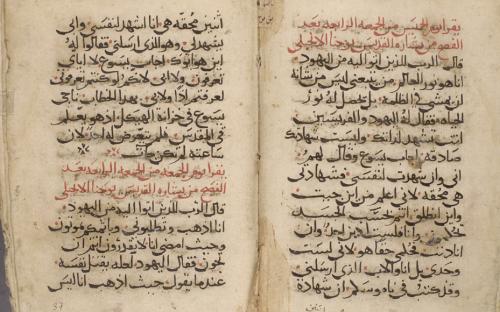 يقرا يوم الخميس من الجمعه الرابعه بعد
الفصح من بشاره القديس يوحنا الانجيلي
قال الرب للذين اتوا اليه من اليهود
انا هو نور العالم من يتبعني ليس من شانه
ان يمشي في الظلمه بل يحصل له نور
الحياه فقال له اليهود والفريسيين
انت تشهد لذاتك وليست شهادتك
صادقه اجاب يسوع وقال لهم
اني وان شهدت لنفسي فشهادتي
هي محقه لاني اعلم من اين جيت
واين انطلق انتم بحسب الجسد
وانا فلست ادين احدا وان
انا دنت فحكمي حقا هو لاني لست
وحدي بل انا والاب الذي ارسلني
وقد كتب في ناموسكم ان شهادة
اثنين محقه هي انا اشهد لنفسي وابي
يشهد لي وهو الذي ارسلني فقالوا له
اين هو ابوك اجاب يسوع لا اياي
تعرفون ولا ابي لانكم لو كنتم تعرفوني
لعرفتم اذا ولابي بهذا الخطاب ناجى
يسوع في خزانة الهيكل اذ هو يعلم
في المقدس فلم يتعرض له احد لان
ساعته لم تكن جات
يقرا يوم الجمعه من الجمعه الرابعه بعد
الفصح من بشاره القديس يوحنا الانجيلي
قال الرب للذين اتوا اليه من اليهود
انا اذهب وتطلبوني تموتون
وحيث امضي انا لا تقدرون انتم ان
تجون فقال اليهود لعله يقتل نفسه
عندما يقول حيث اذهب انا ليس
37